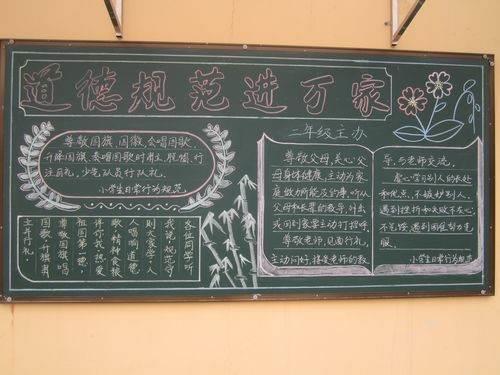 道德规范进万家
二年级主办
尊敬国旗、国徽,会唱国歌,
升降国旗、奏唱国歌时肃立、脱帽、行
注目礼,少先队员行队礼。
小学生日常行为规范
各位同学听
我说,规范守
则大家学,人
人唱响道德
歌,精神食粮
伴你我,热爱
祖国第一德,
尊敬国旗唱
国歌,升旗肃
立并行礼
尊敬父母,关心父
母身体健康,主动为家
庭做力所能及的事,听从
父母和长辈的教导,外出
或回到家要主动打招呼。
尊敬老师,见面行礼,
主动问好,接受老师的教
导,与老师交流。
虚心学习别人的长处
和优点,不嫉妒别人。
遇到挫折和失败不灰心,
不气馁,遇到困难努力克
服。
小学生日常行为规范